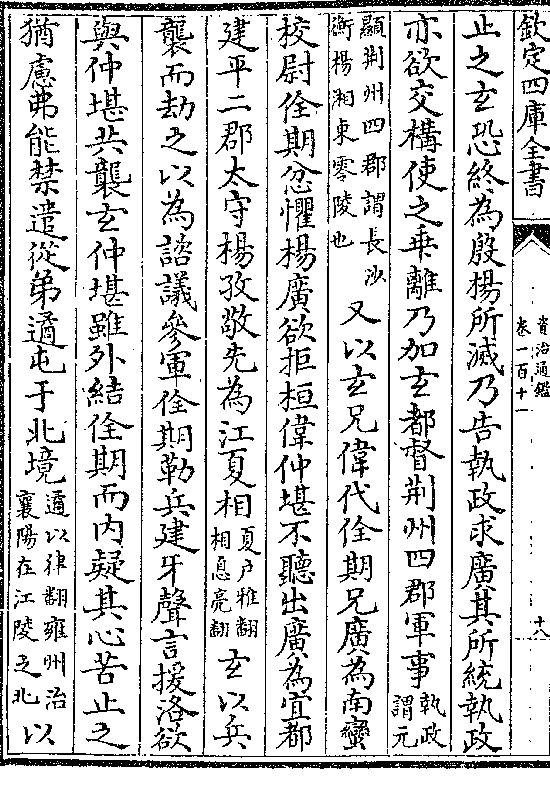 欽定四庫全書
資治通鑑
卷一百十一
十八
止之玄恐終為殷楊所滅乃告執政求廣其所統執政
亦欲交構使之乖離乃加玄都督荆州四郡軍事執政
謂元
顯荆州四郡謂長沙
衡楊湘東零陵也
又以玄兄偉代佺期兄廣為南蠻
校尉佺期忿懼楊廣欲拒桓偉仲堪不聽出廣為宜都
建平二郡太守楊孜敬先為江夏相
夏户雅翻
相息亮翻
玄以兵
襲而劫之以為諮議參軍佺期勒兵建牙聲言援洛欲
與仲堪共襲玄仲堪雖外結佺期而内疑其心苦止之
猶慮弗能禁遣從弟遹屯于北境
遹以律翻雍州治
襄陽在江陵之北
以